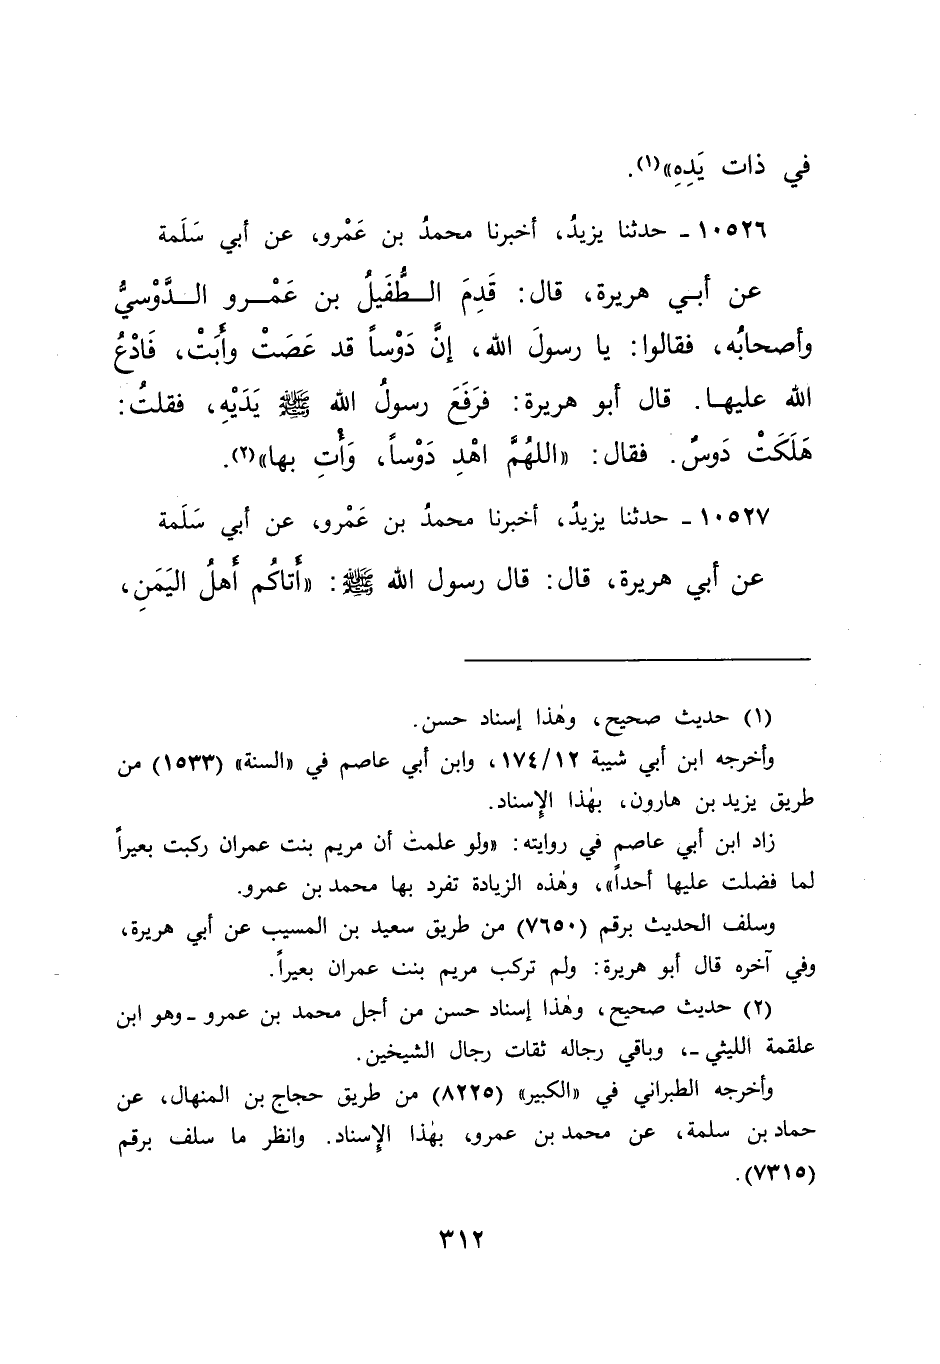 في ذات يَدِهِ»(١).
١٠٥٢٦ ـ حدثنا يزيدُ، أخبرنا محمدُ بن عَمْرو، عن أبي سَلَمة
عن أبي هريرة، قال: قَدِمَ الطُّفَيلُ بن عَمْرو الدَّوْسيُّ
وأصحابُه، فقالوا: يا رسولَ الله، إنَّ دَوْساً قد عَصَتْ وأَبَتْ، فَادْعُ
الله عليها. قال أبو هريرة: فرَفَعَ رسولُ الله ﷺ يَدَيْهِ، فقلتُ:
هَلَكَتْ دَوسٌ. فقال: «اللهُمَّ اهْدِ دَوْساً، وَأْتِ بها»(٢).
١٠٥٢٧ ـ حدثنا يزيدُ، أخبرنا محمدُ بن عَمْرو، عن أبي سَلَمة
عن أبي هريرة، قال: قال رسول الله ﷺ: «أَتاكُم أَهلُ اليَمَنِ،
(١) حديث صحيح، وهٰذا إسناد حسن.
وأخرجه ابن أبي شيبة ١٧٤/١٢، وابن أبي عاصم في «السنة» (١٥٣٣) من
طريق يزيد بن هارون، بهٰذا الإسناد.
زاد ابن أبي عاصم في روايته: «ولو علمت أن مريم بنت عمران ركبت بعيراً
لما فضلت عليها أحداً»، وهٰذه الزيادة تفرد بها محمد بن عمرو.
وسلف الحديث برقم (٧٦٥٠) من طريق سعيد بن المسيب عن أبي هريرة،
وفي آخره قال أبو هريرة: ولم تركب مريم بنت عمران بعيراً.
(٢) حديث صحيح، وهٰذا إسناد حسن من أجل محمد بن عمرو ـ وهو ابن
علقمة الليثي ـ، وباقي رجاله ثقات رجال الشيخين.
وأخرجه الطبراني في «الكبير» (٨٢٢٥) من طريق حجاج بن المنهال، عن
حماد بن سلمة، عن محمد بن عمرو، بهٰذا الإسناد. وانظر ما سلف برقم
(٧٣١٥).
٣١٢